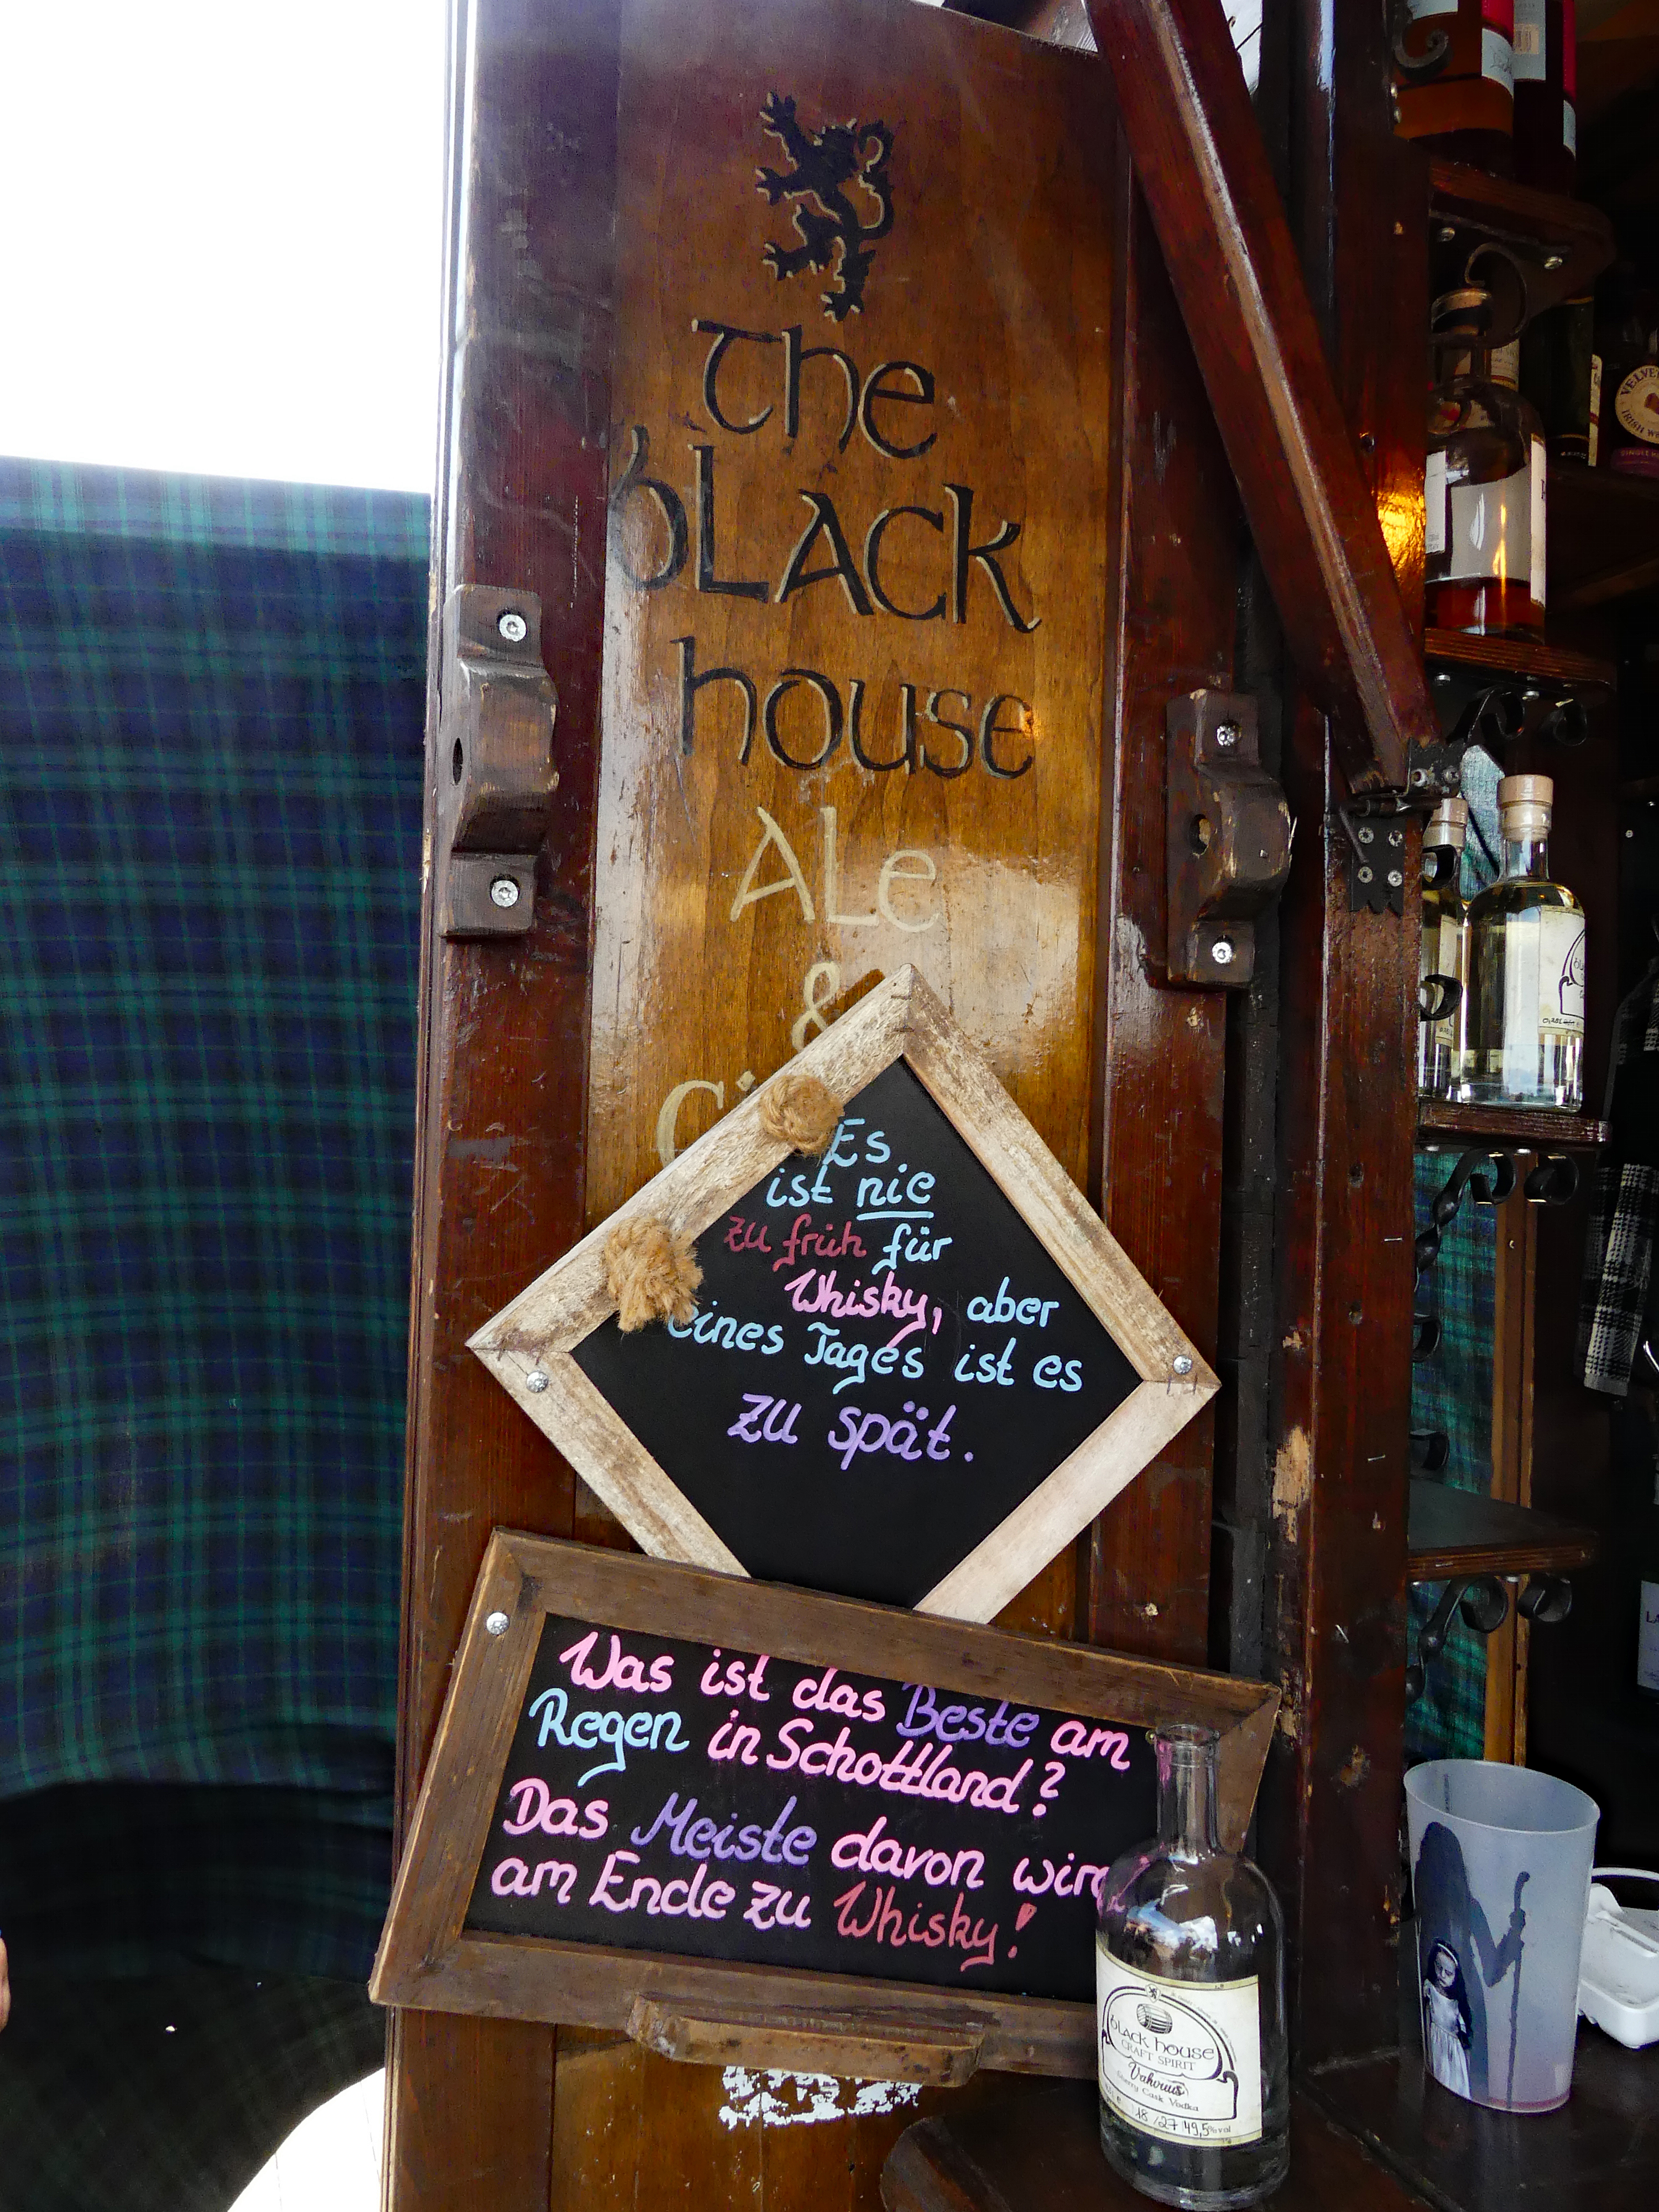 The
bLACK
house
ALe
&
Es
ist nie
zu früh für
Whisky, aber
eines Tages ist es
zu spät.
Was ist das Beste am
Regen in Schottland?
Das Meiste davon wird
am Ende zu Whisky!
bLACK house
CRAFT SPIRIT
Sherry Cask Vodka
18/27 49,5%vol